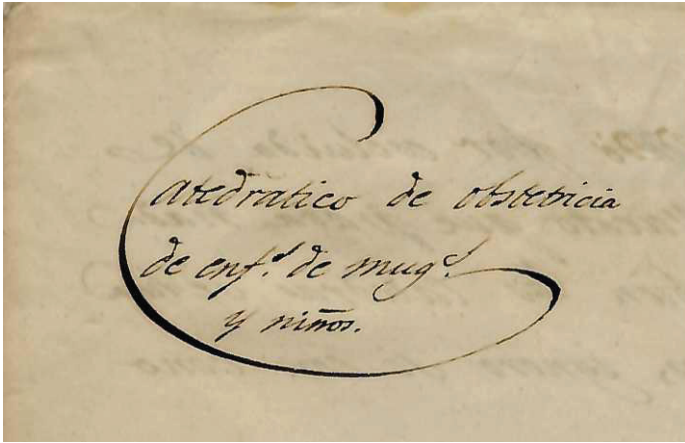 Catedratico de obstetricia
de enf.s de mug.s
y niños.